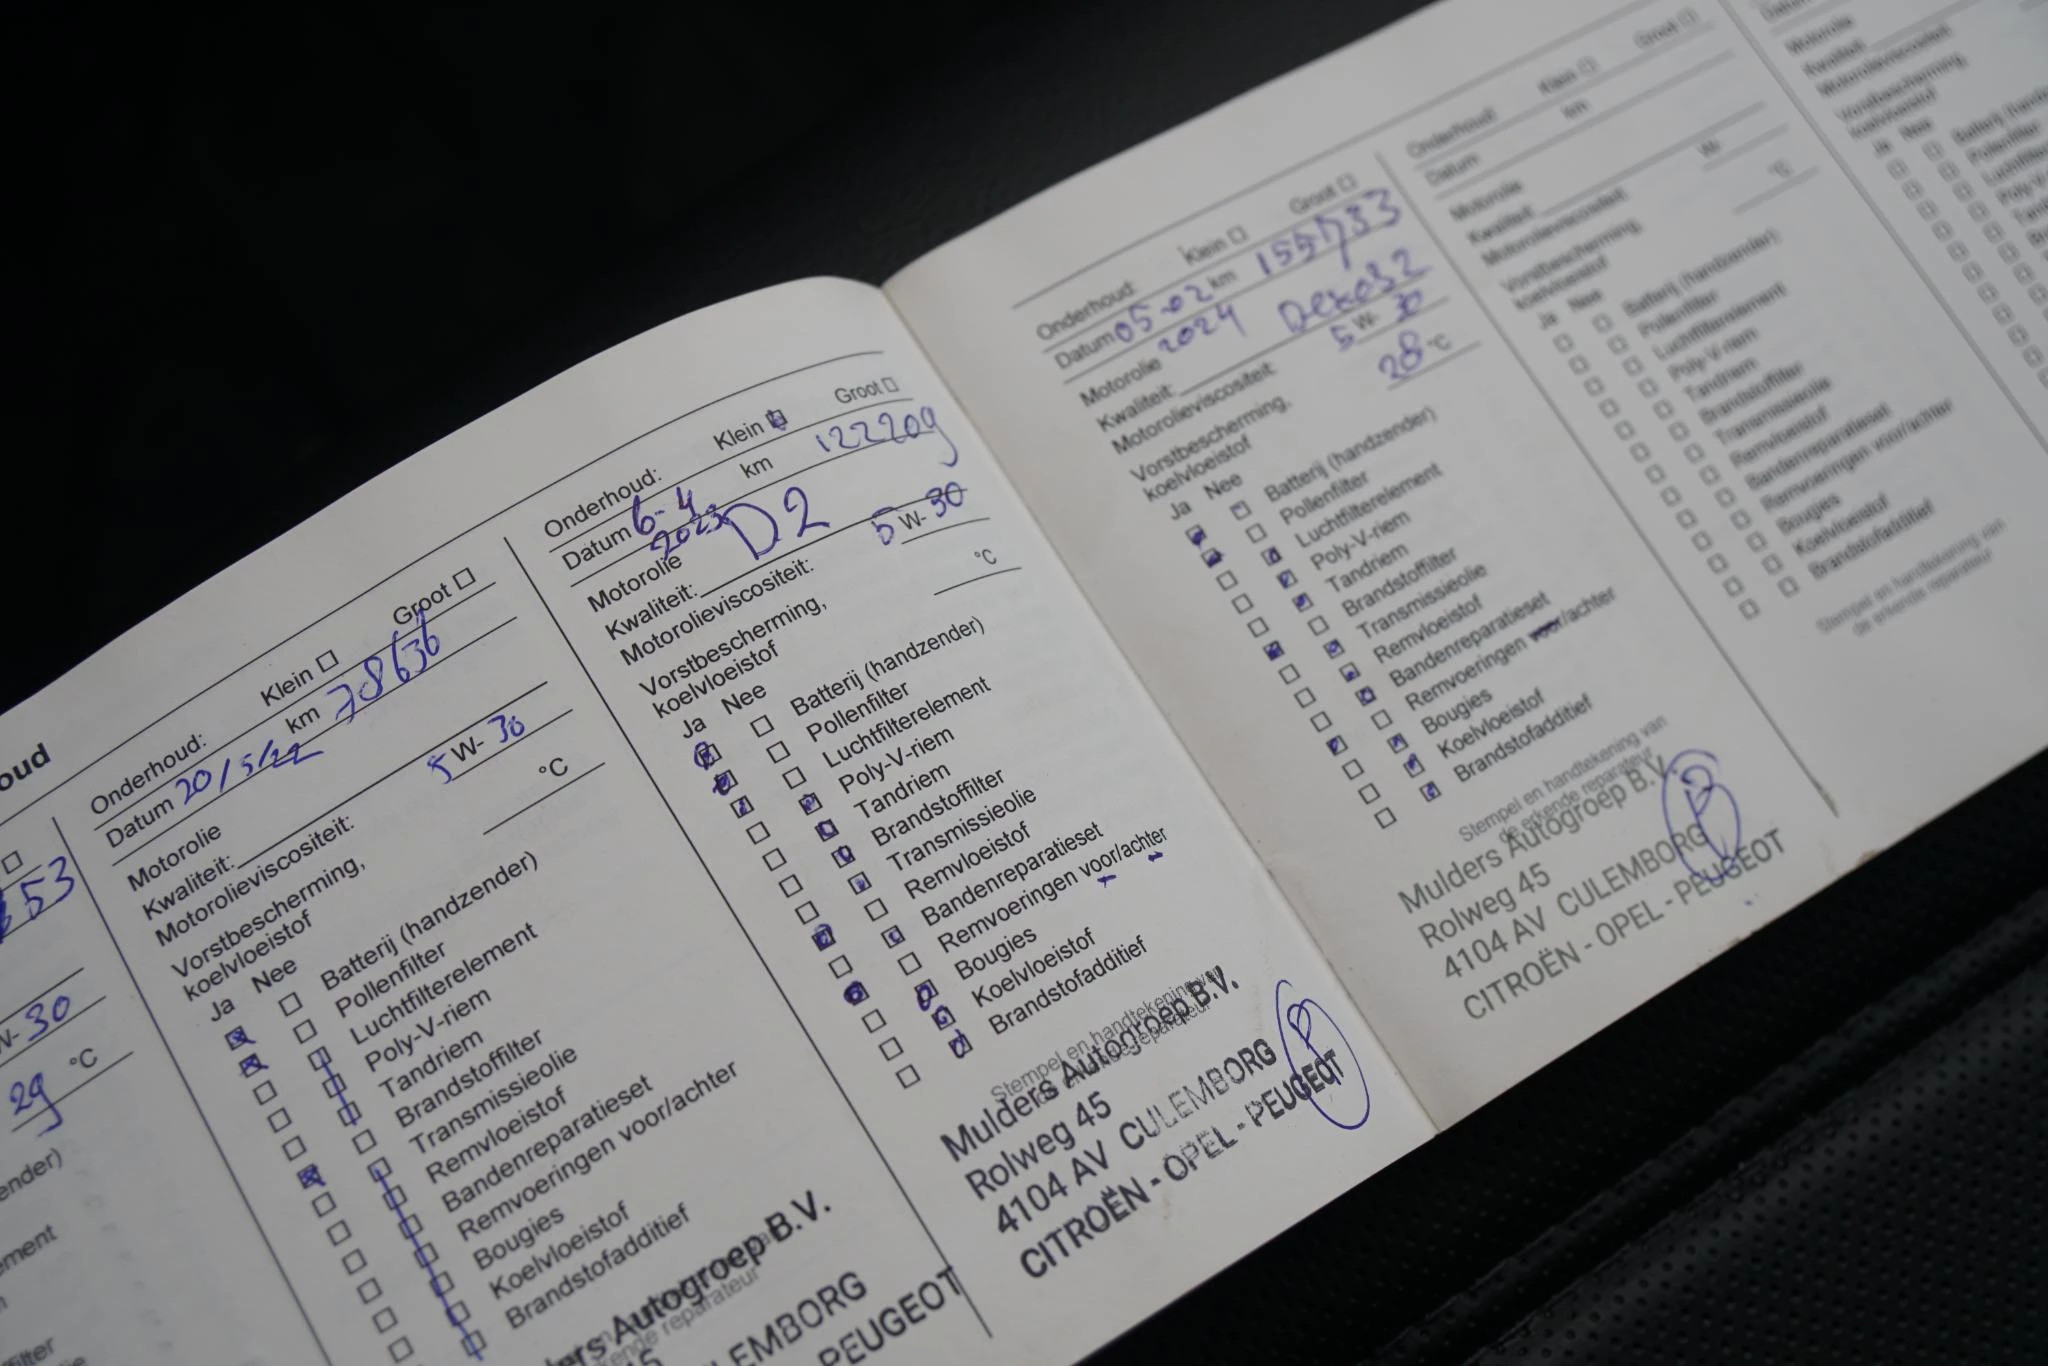 oud
53
W- 30
29 °C
ender)
ement
filter
Onderhoud: Klein Groot
Datum 20/5/22 km 78636
Motorolie
Kwaliteit:
Motorolieviscositeit: 5 W- 30
Vorstbescherming,
koelvloeistof °C
Ja Nee
Batterij (handzender)
Pollenfilter
Luchtfilterelement
Poly-V-riem
Tandriem
Brandstoffilter
Transmissieolie
Remvloeistof
Bandenreparatieset
Remvoeringen voor/achter
Bougies
Koelvloeistof
Brandstofadditief
ers Autogroep B.V.
ende reparateur
LEMBORG
PEUGEOT
Onderhoud: Klein Groot
Datum 6-4 km 122209
2023
Motorolie
Kwaliteit: D2
Motorolieviscositeit: 5 W- 30
Vorstbescherming,
koelvloeistof °C
Ja Nee
Batterij (handzender)
Pollenfilter
Luchtfilterelement
Poly-V-riem
Tandriem
Brandstoffilter
Transmissieolie
Remvloeistof
Bandenreparatieset
Remvoeringen voor/achter
Bougies
Koelvloeistof
Brandstofadditief
Stempel en handtekening van
Mulders Autogroep B.V.
Rolweg 45
4104 AV CULEMBORG
CITROËN - OPEL - PEUGEOT
Onderhoud: Klein Groot
Datum 05-02 km 155733
2024
Motorolie
Kwaliteit:
Motorolieviscositeit: 5 W- 30
Vorstbescherming,
koelvloeistof 28 °C
Ja Nee
Batterij (handzender)
Pollenfilter
Luchtfilterelement
Poly-V-riem
Tandriem
Brandstoffilter
Transmissieolie
Remvloeistof
Bandenreparatieset
Remvoeringen voor/achter
Bougies
Koelvloeistof
Brandstofadditief
Stempel en handtekening van
de erkende reparateur
Mulders Autogroep B.V.
Rolweg 45
4104 AV CULEMBORG
CITROËN - OPEL - PEUGEOT
Onderhoud: Klein Groot
Datum km
Motorolie
Kwaliteit:
Motorolieviscositeit: W-
Vorstbescherming,
koelvloeistof °C
Ja Nee
Batterij (handzender)
Pollenfilter
Luchtfilterelement
Poly-V-riem
Tandriem
Brandstoffilter
Transmissieolie
Remvloeistof
Bandenreparatieset
Remvoeringen voor/achter
Bougies
Koelvloeistof
Brandstofadditief
Stempel en handtekening van
de erkende reparateur
Datum
Motorolie
Kwaliteit:
Motorolieviscositeit:
Vorstbescherming,
koelvloeistof
Ja Nee
Batterij (handz
Pollenfilter
Luchtfilter
Poly-V